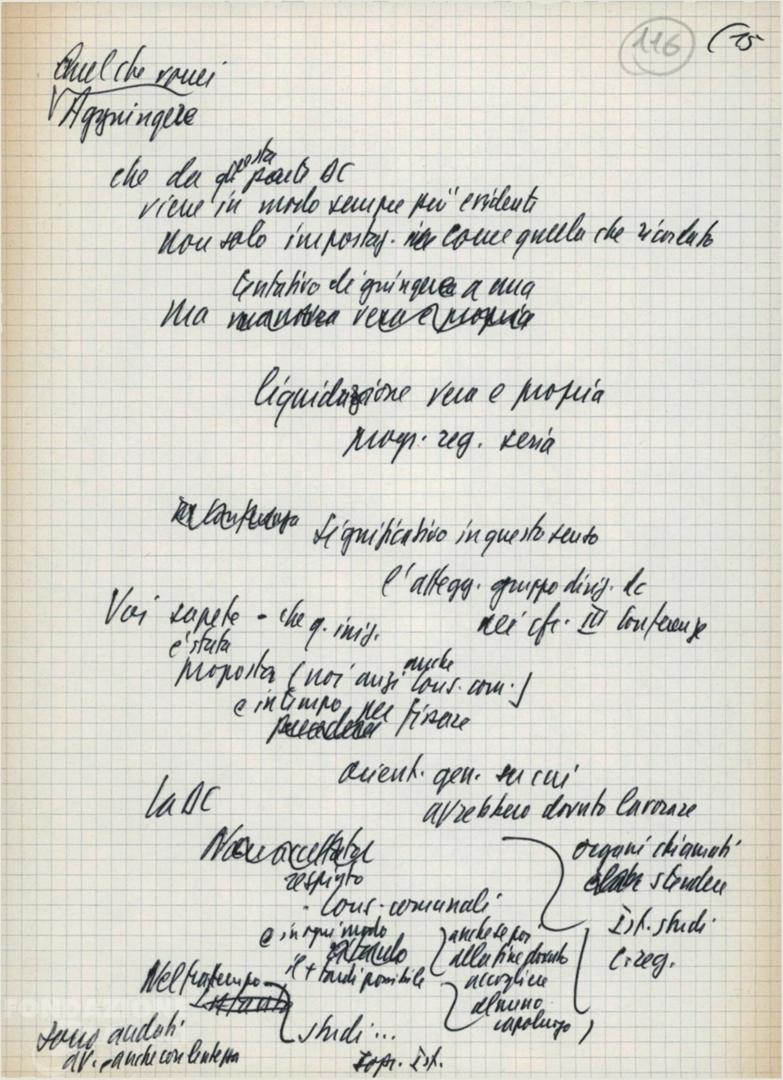 116 (15
Quel che vorrei
Aggiungere
che da questa parte DC
viene in modo sempre più evidente
non solo impostaz. come quella che ricordato
tentativo di giungere a una
Ma manovra vera e propria
liquidazione vera e propria
progr. reg. seria
significativo in questo senso
l'attegg. gruppo dirig. dc
Voi sapete - che q. iniz. nei cfr. III Conferenze
è stata
proposta (noi anzi anche Cons. com.)
e in tempo per fissare
orient. gen. su cui
La DC avrebbero dovuto lavorare
Non accettata organi chiamati
respinto stendere
- Cons. comunali Ist. studi
e in ogni modo anche se poi C. reg.
alla fine dovuto
il + tardi possibile accogliere
Nel frattempo almeno
capoluogo)
sono andati studi...
av. anche con lentezza Ist.